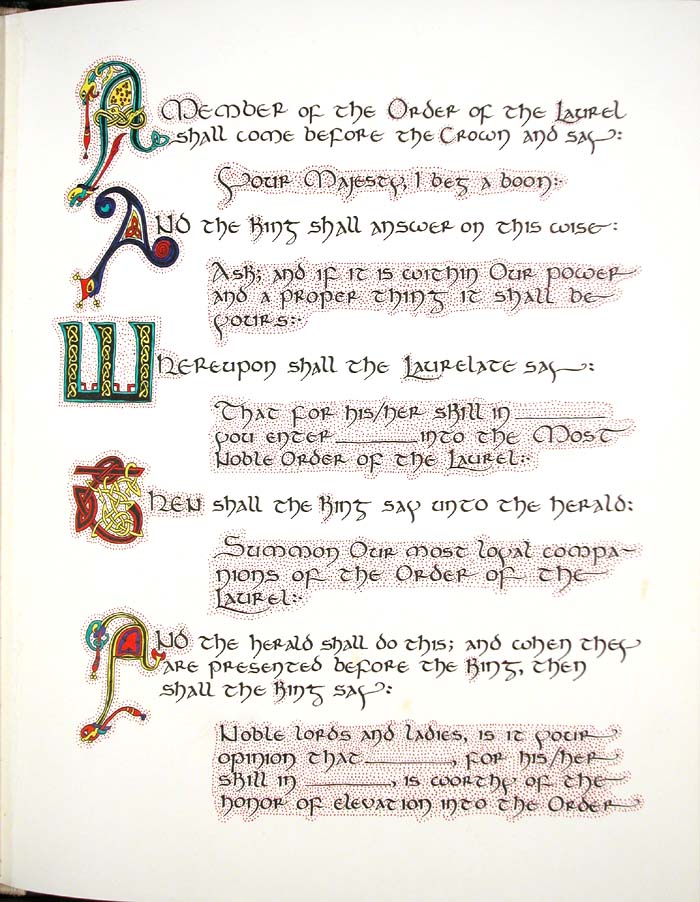 A Member of the Order of the Laurel
shall come before the Crown and say:
Your Majesty, I beg a boon:
And the King shall answer on this wise:
Ask; and if it is within Our power
and a proper thing it shall be
yours:
Whereupon shall the Laurelate say:
That for his/her skill in ________
you enter ________ into the Most
Noble Order of the Laurel:
Then shall the King say unto the herald:
Summon Our most loyal compa-
nions of the Order of the
Laurel:
And the herald shall do this; and when they
are presented before the King, then
shall the King say:
Noble lords and ladies, is it your
opinion that ________, for his/her
skill in ________, is worthy of the
honor of elevation into the Order